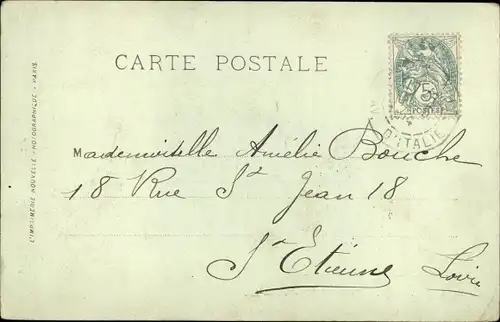 CARTE POSTALE
5
POSTES
D'ITALIE
Mademoiselle Amélie Bouche
18 Rue St Jean 18
St Etienne Loire
L'IMPRIMERIE NOUVELLE PHOTOGRAPHIQUE - PARIS